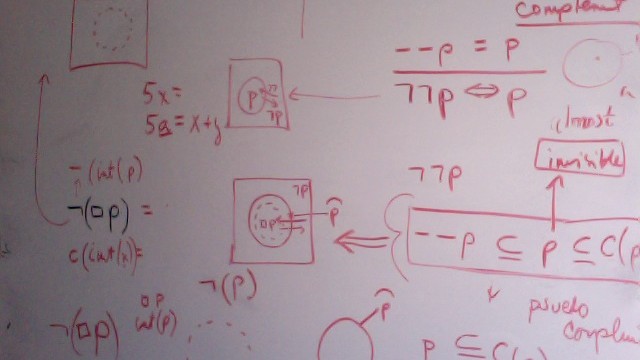 complement
--p = p
¬¬p ⇔ p
5x=
5a=x+y
p
¬p
almost
invisible
¬(int(p)
¬(□p) =
c(int(x)=
¬p
□p
p̂
¬¬p
--p ⊆ p ⊆ C(p
¬(p)
psuedo
complem
□p
int(p)
¬(□p)
p̂
p ⊆ C(